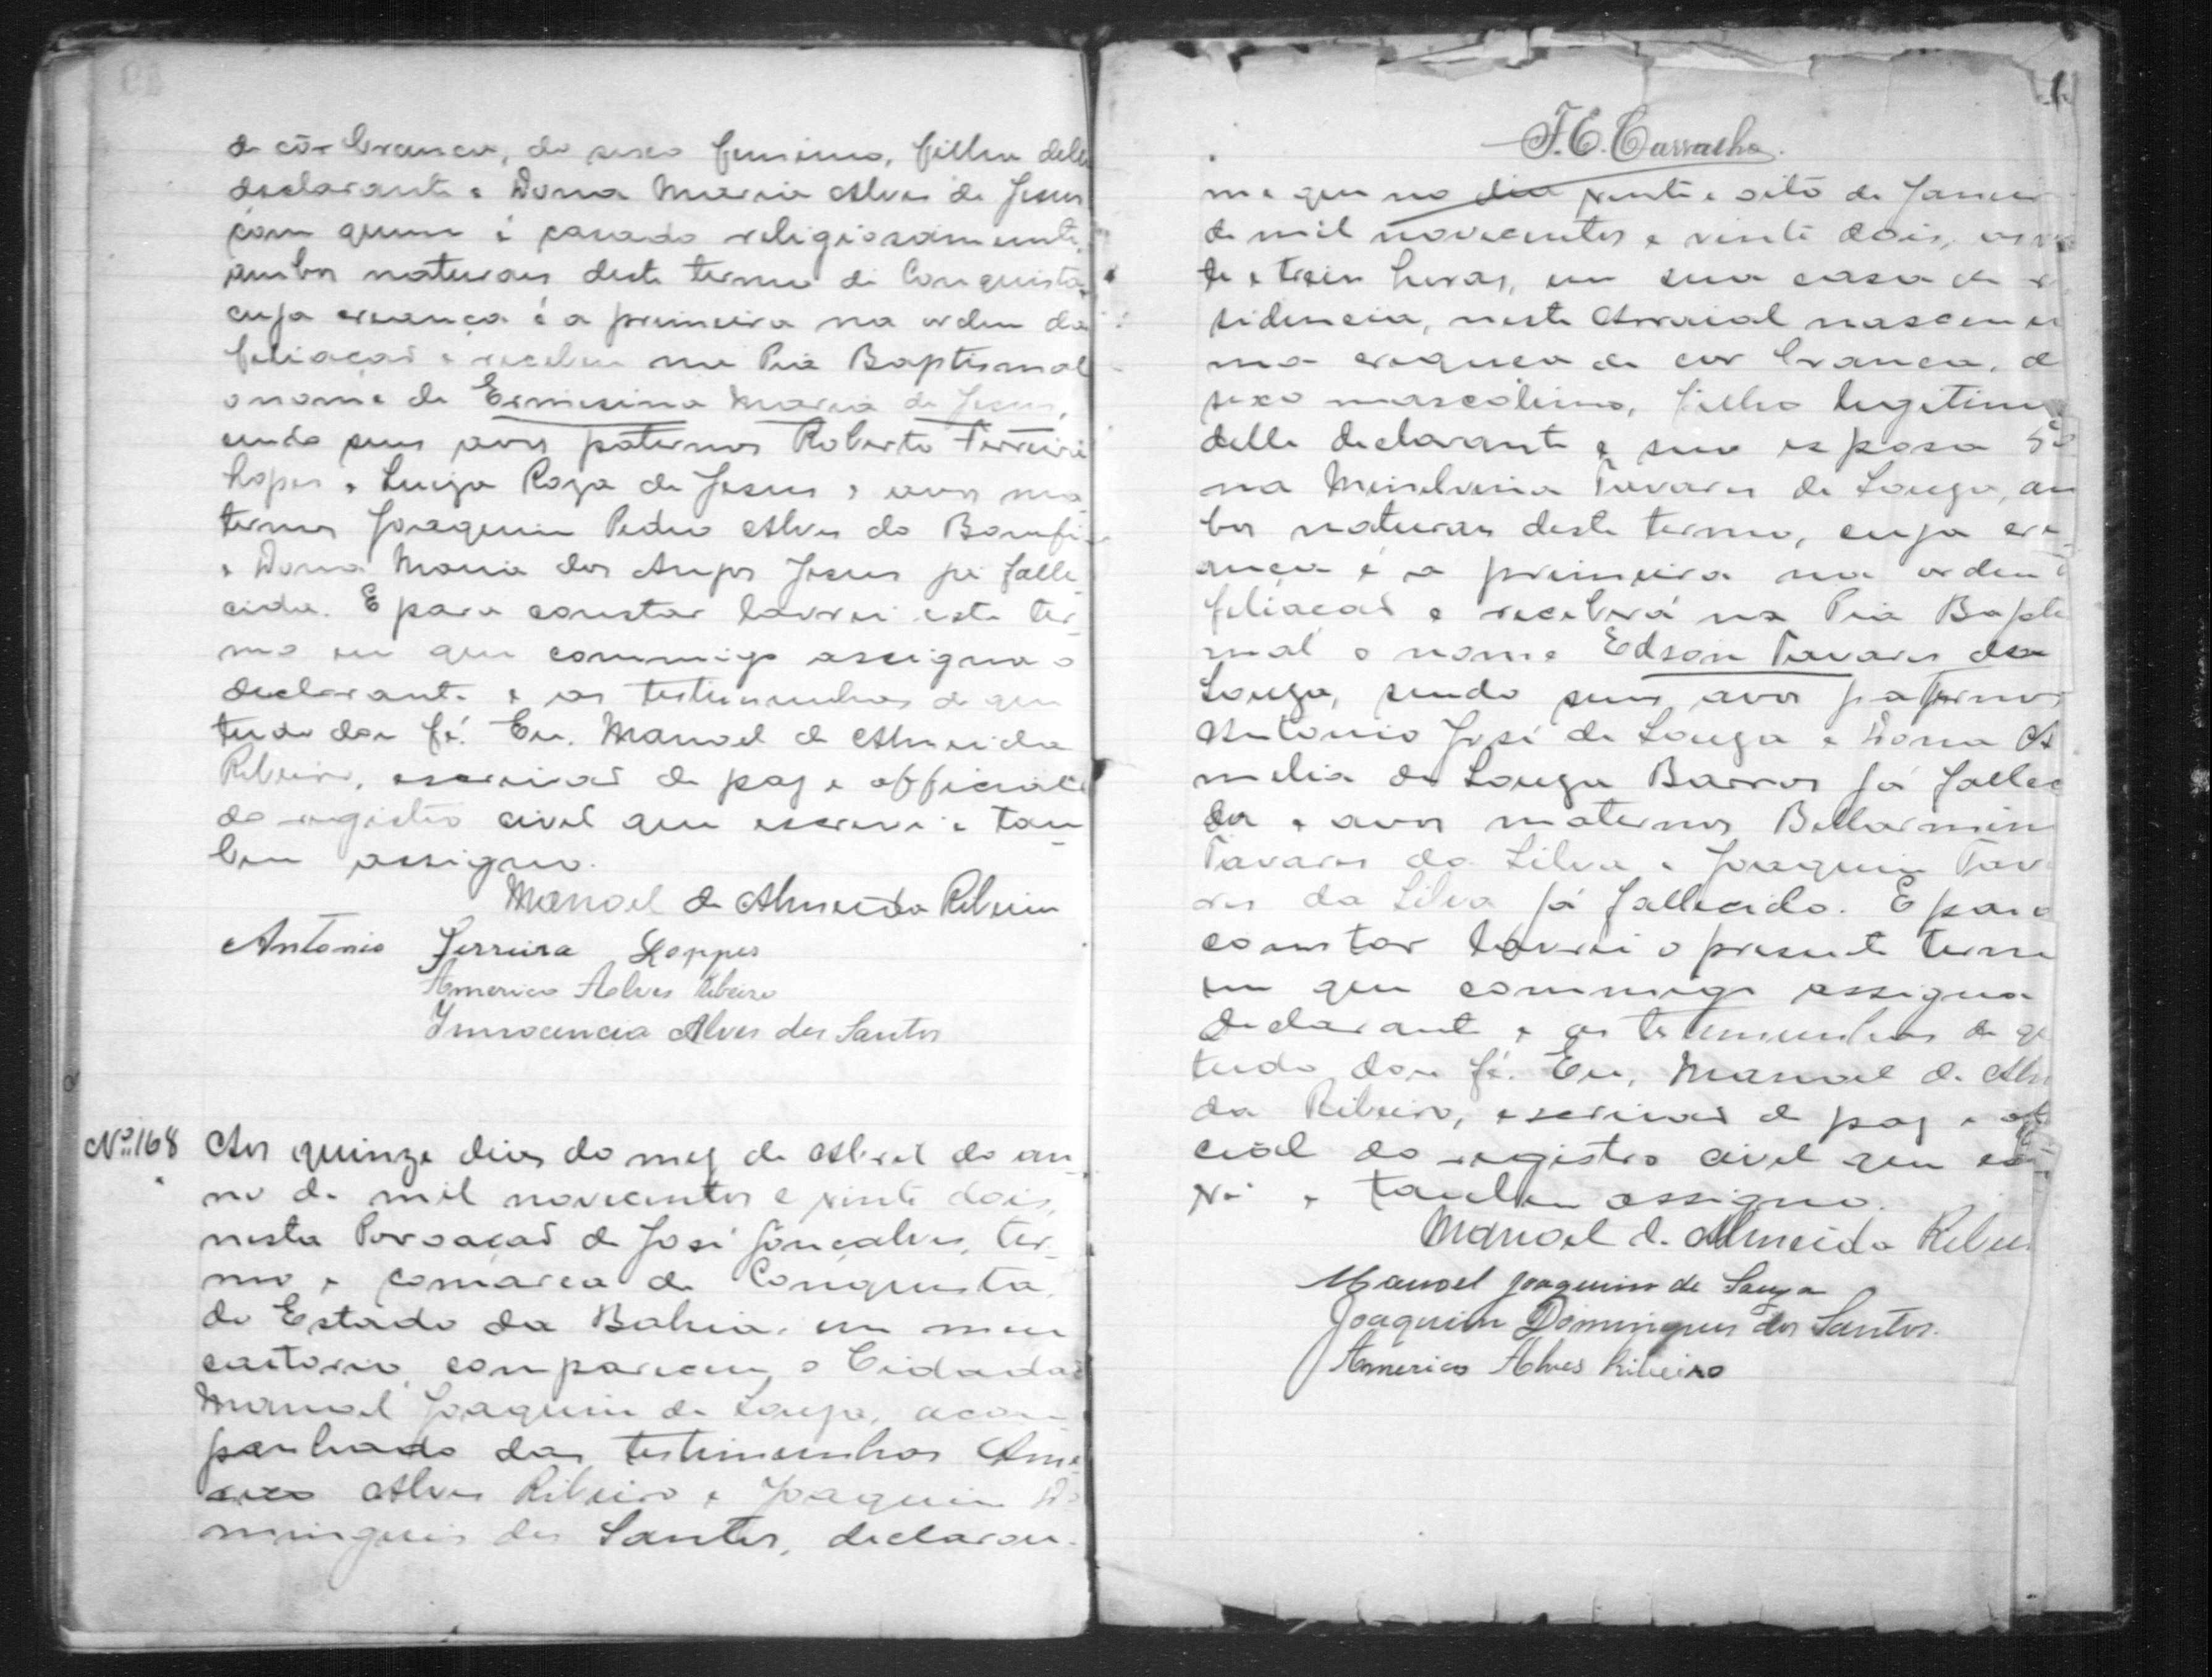 de côr branca, do sexo feminino, filha delle
declarante e Dona Maria Alves de Jesus
com quem é casado religiosamente,
ambos naturaes deste termo de Conquista,
cuja creança é a primeira na ordem da
filiação e recebeu na Pia Baptismal
o nome de Ermesina Maria de Jesus,
sendo seus avos paternos Roberto Ferreira
Lopes e Luiza Roza de Jesus e avos ma-
ternos Joaquim Pedro Alves do Bomfim
e Dona Maria dos Anjos Jesus já falle-
cida. E para constar lavrei este ter-
mo em que commigo assigna o
declarante e as testimunhas do que
tudo dou fé. Eu, Manoel de Almeida
Ribeiro, escrivão de paz e official
do registro civel que escrevi e tam-
bem assigno.
Manoel de Almeida Ribeiro
Antonio Ferreira Loppes
Americo Alves Ribeiro
Innocencio Alves dos Santos
Nº 168 Aos quinze dias do mez de Abril do an-
no de mil novecentos e vinte dois,
nesta Povoação de José Gonçalves, ter-
mo e comarca de Conquista,
do Estado da Bahia, em meu
cartorio, compareceu o Cidadão
Manoel Joaquim de Souza, acom-
panhado das testimunhas Ame-
rico Alves Ribeiro e Joaquim Do-
mingues dos Santos, declarou-
F. E. Carvalho.
me que no dia vinte e oito de Janeir
de mil novecentos e vinte dois, as
te e treis horas, em sua casa de re
sidencia, neste Arraial nasceu u
ma creança de cor branca, d
sexo mascolino, filho legitimo
delle declarante e sua esposa Do
na Minelvina Tavares de Souza, am
bos naturaes deste termo, cuja cre-
ança é a primeira na ordem d
filiação e receberá na Pia Baptis
mal o nome Edson Tavares de
Souza, sendo seus avos paternos
Antonio José de Souza e Dona A
melia de Souza Barros já falleci
dos e avos maternos Bellarmin
Tavares da Silva e Joaquim Tav
res da Silva já fallecido. E para
constar lavrei o presente termo
em que commigo assigna
declarante e as testimunhas do q
tudo dou fé. Eu, Manoel de Alm
da Ribeiro, escrivão de paz e offi
cial do registro civel que es
vi e tambem assigno.
Manoel de Almeida Ribei
Manoel Joaquim de Souza
Joaquim Domingues dos Santos.
Americo Alves Ribeiro